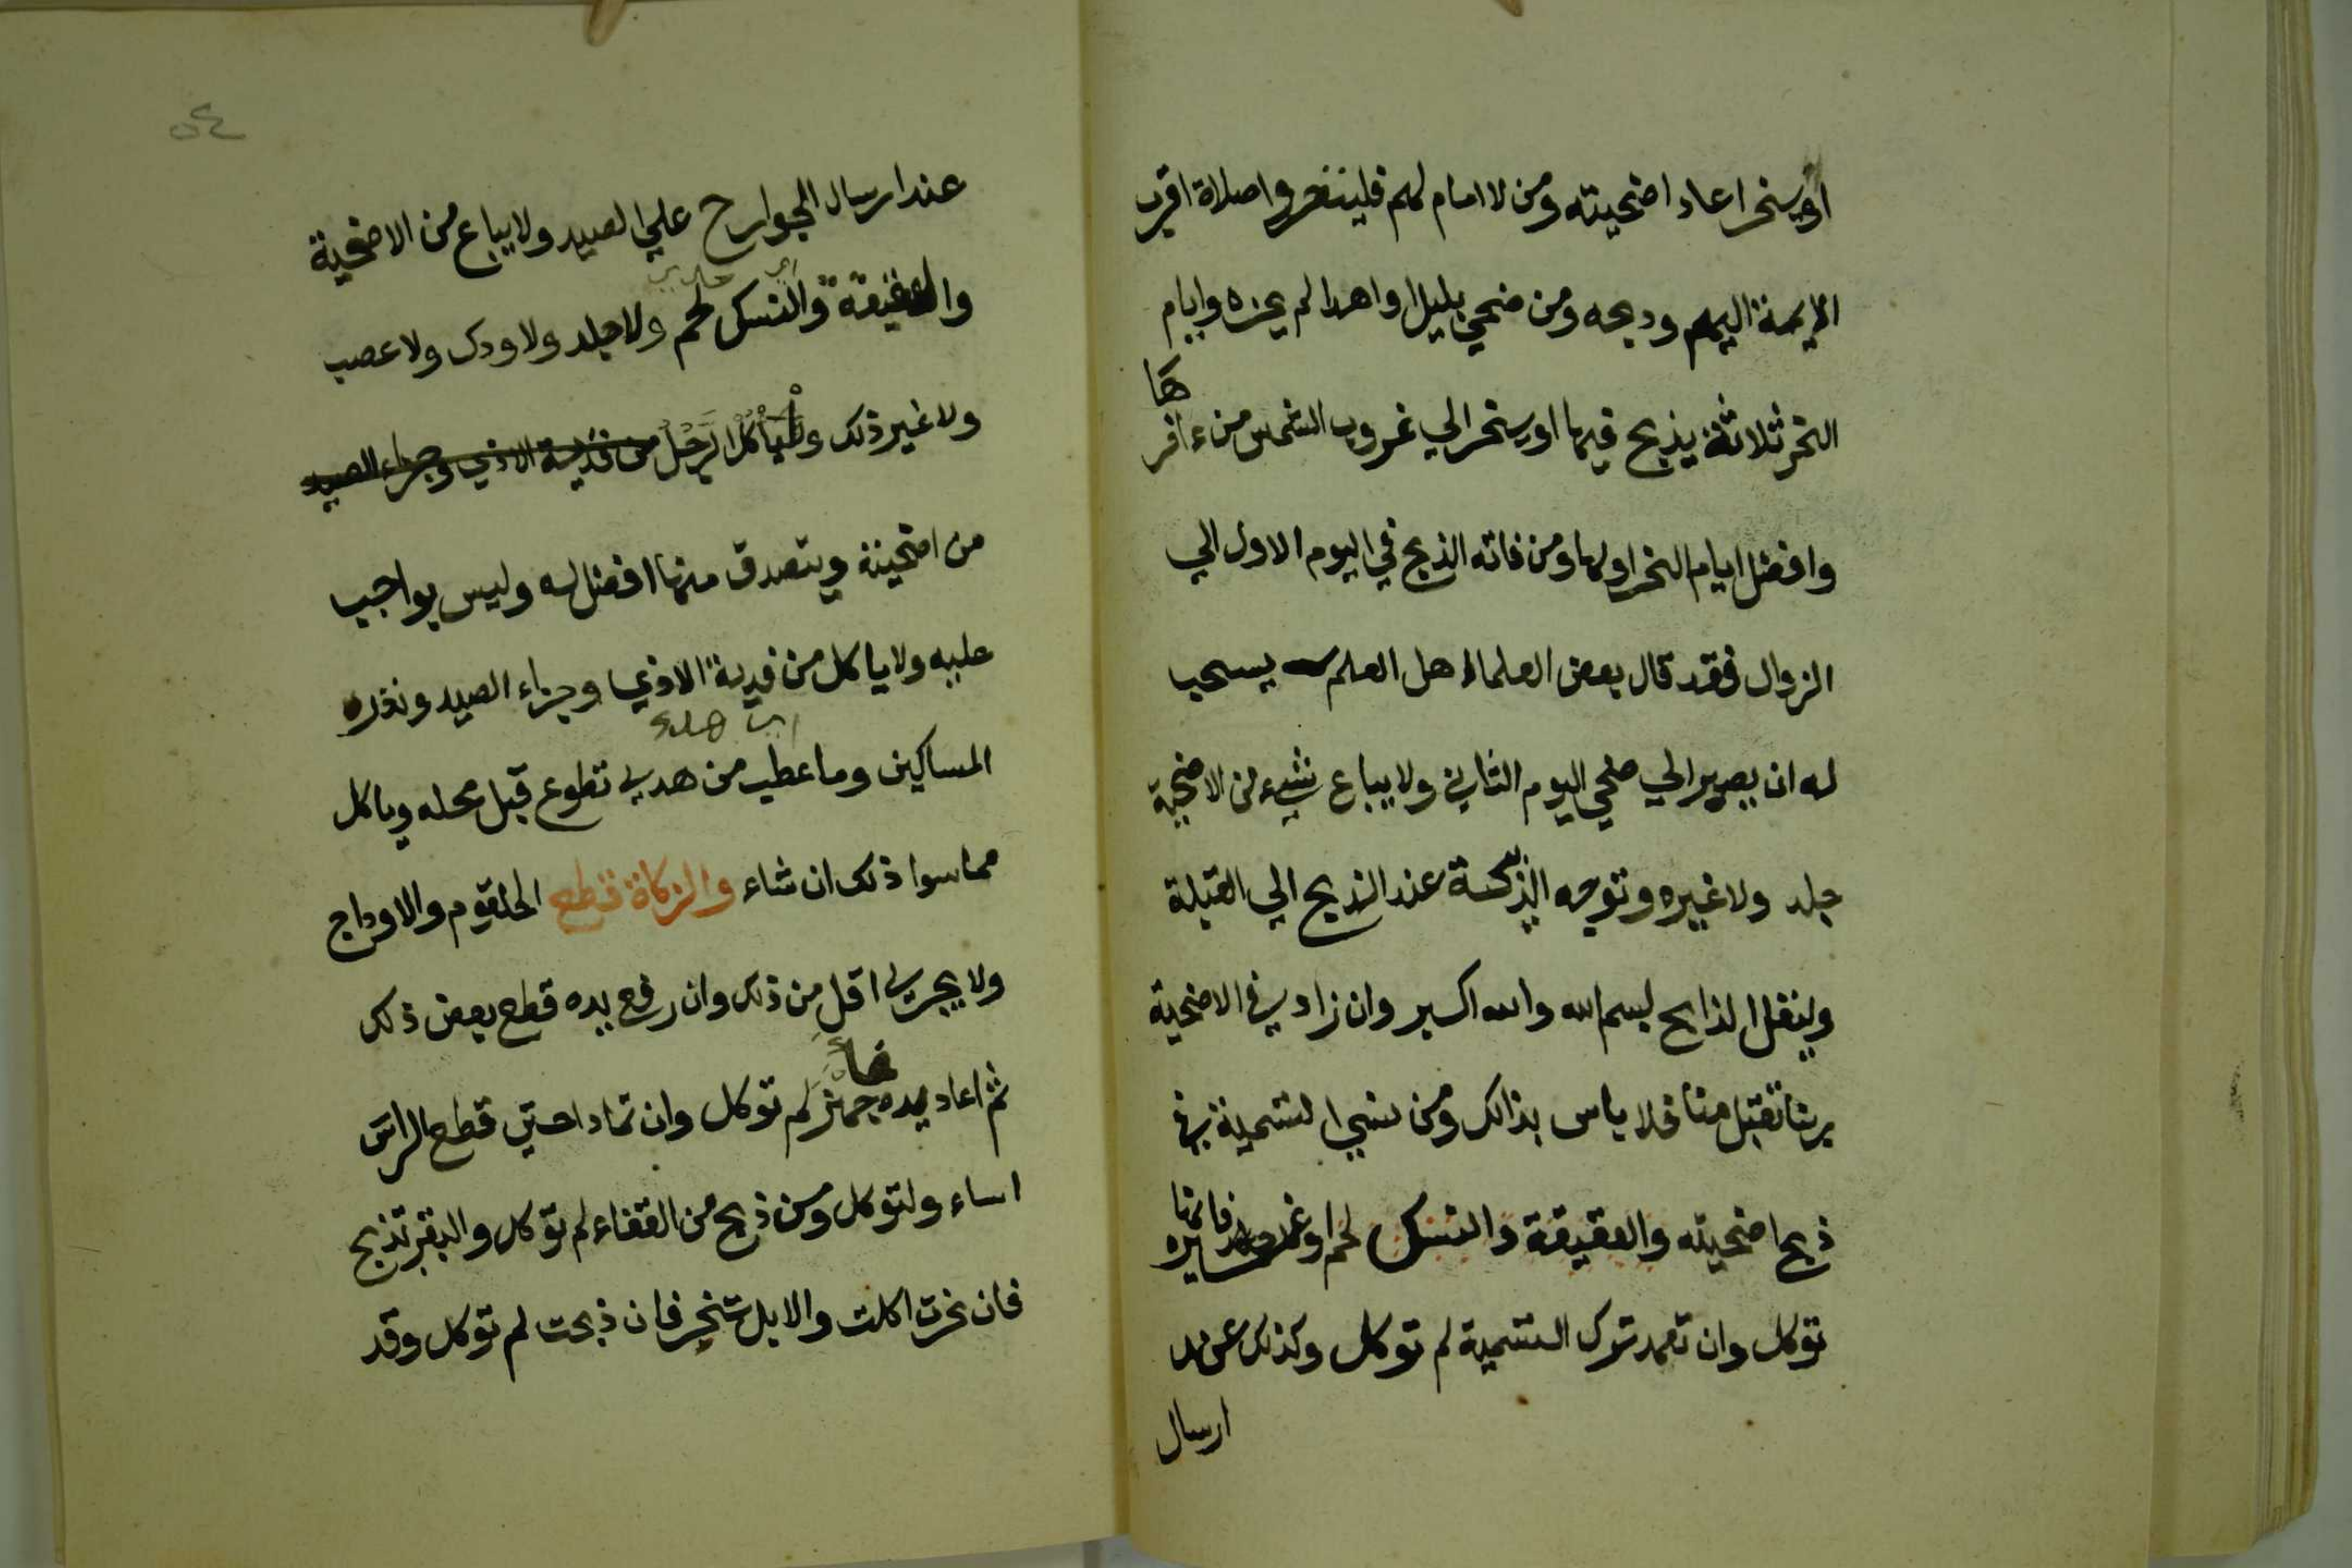 او ينحر اعاد اضحيته ومن لا امام لهم فليتحروا صلاة اقرب
الايمة اليهم وذبحه ومن ضحي بليل او اهدا لم يجزه وايام
النحر ثلاثة يذبح فيها او ينحر الي غروب الشمس من ءاخر
ها
وافضل ايام النحر اولها ومن فاته الذبح في اليوم الاول الي
الزوال فقد قال بعض العلماء اهل العلم يستحب
له ان يصبر الي ضحي اليوم الثاني ولا يباع شيء من الاضحية
جلد ولا غيره وتوجه الذبيحة عند الذبح الي القبلة
وليقل الذابح بسم الله والله اكبر وان زاد في الاضحية
ربنا تقبل منا فلا باس بذالك ومن نسي التسمية في
ذبح اضحيته والعقيقة والنسك لحم او غيره فانها
توكل وان تعمد ترك التسمية لم توكل وكذلك عند
ارسال
٥٤
عند ارسال الجوارح علي الصيد ولا يباع من الاضحية
والعقيقة والنسك لحم ولا جلد ولا ودك ولا عصب
ولا غير ذلك وياكل الرجل من فدية الاذي وجزاء الصيد
من اضحيته ويتصدق منها افضل له وليس بواجب
عليه ولا ياكل من فدية الاذي وجزاء الصيد ونذر
المساكين وما عطب من هدي تطوع قبل محله وياكل
مما سوا ذلك ان شاء والزكاة قطع الحلقوم والاوداج
ولا يجزي اقل من ذلك وان رفع يده قطع بعض ذلك
ثم اعاد يده فاجهز لم توكل وان تمادا حتي قطع الراس
اساء ولتوكل ومن ذبح من القفاء لم توكل والبقر تذبح
فان نحرت اكلت والابل تنحر فان ذبحت لم توكل وقد